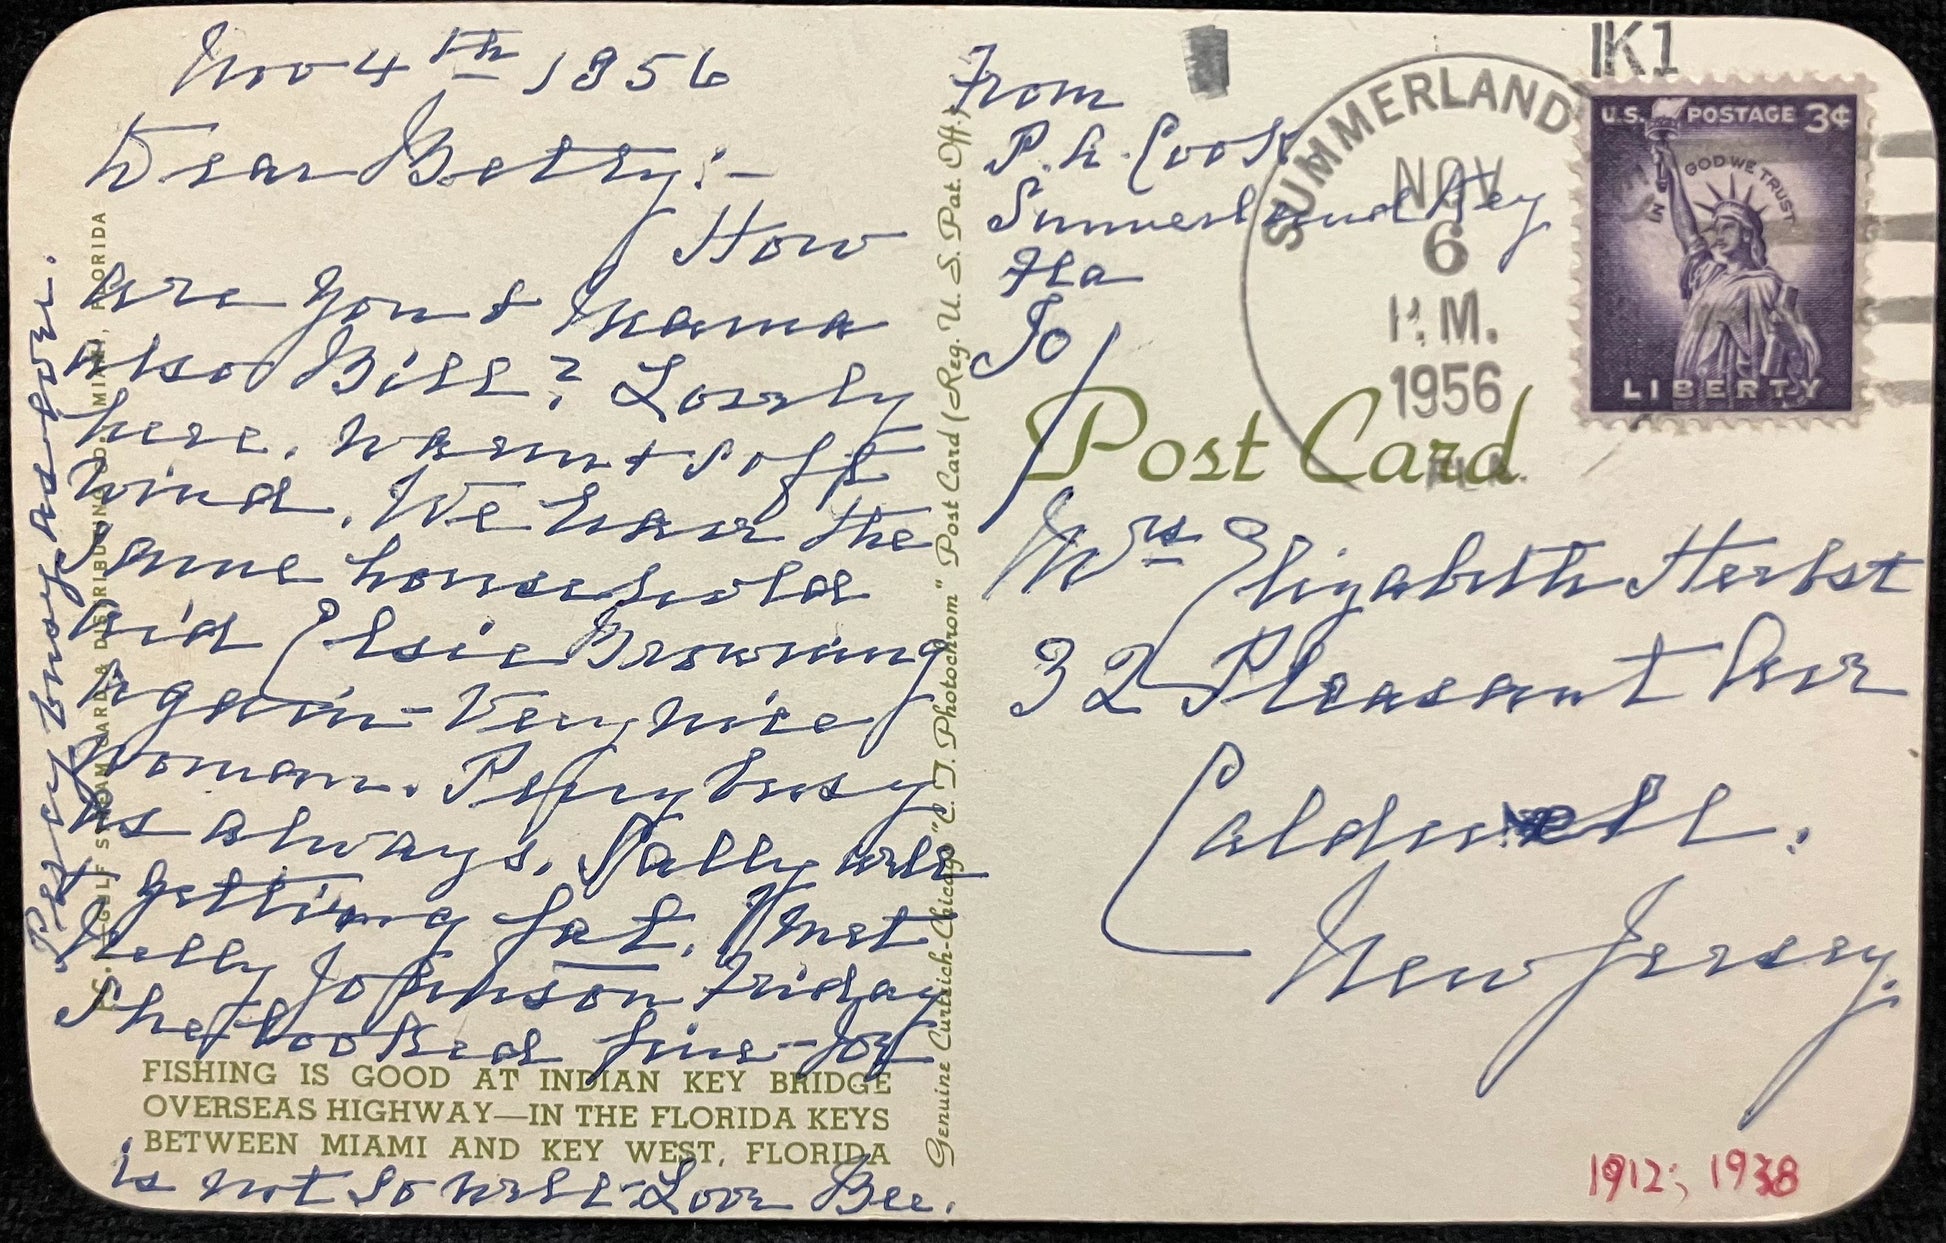 Nov 4th 1956
Dear Betty:-
How
are you & Mama
also Bill? Lovely
here. Warm & soft
wind. We have the
same household
aid Elsie Browning
again - Very nice
woman. Percy busy
as always. Sally well
& getting fat. Met
Nelly Johnson Friday
She looked fine - Joy
is not so well - Love Bee.
Percy busy as before.
FISHING IS GOOD AT INDIAN KEY BRIDGE
OVERSEAS HIGHWAY—IN THE FLORIDA KEYS
BETWEEN MIAMI AND KEY WEST, FLORIDA
GULF STREAM CARD & DISTRIBUTING CO., MIAMI, FLORIDA
Genuine Curteich-Chicago "C. T. Photochrom" Post Card (Reg. U. S. Pat. Off.)
From
P. H. Cook
Summerland Key
Fla
To
Post Card
SUMMERLAND
NOV
6
P.M.
1956
FLA.
IK1
U.S. POSTAGE 3¢
IN GOD WE TRUST
LIBERTY
Mrs Elizabeth Herbst
32 Pleasant Ave
Caldwell.
New Jersey.
1912; 1938